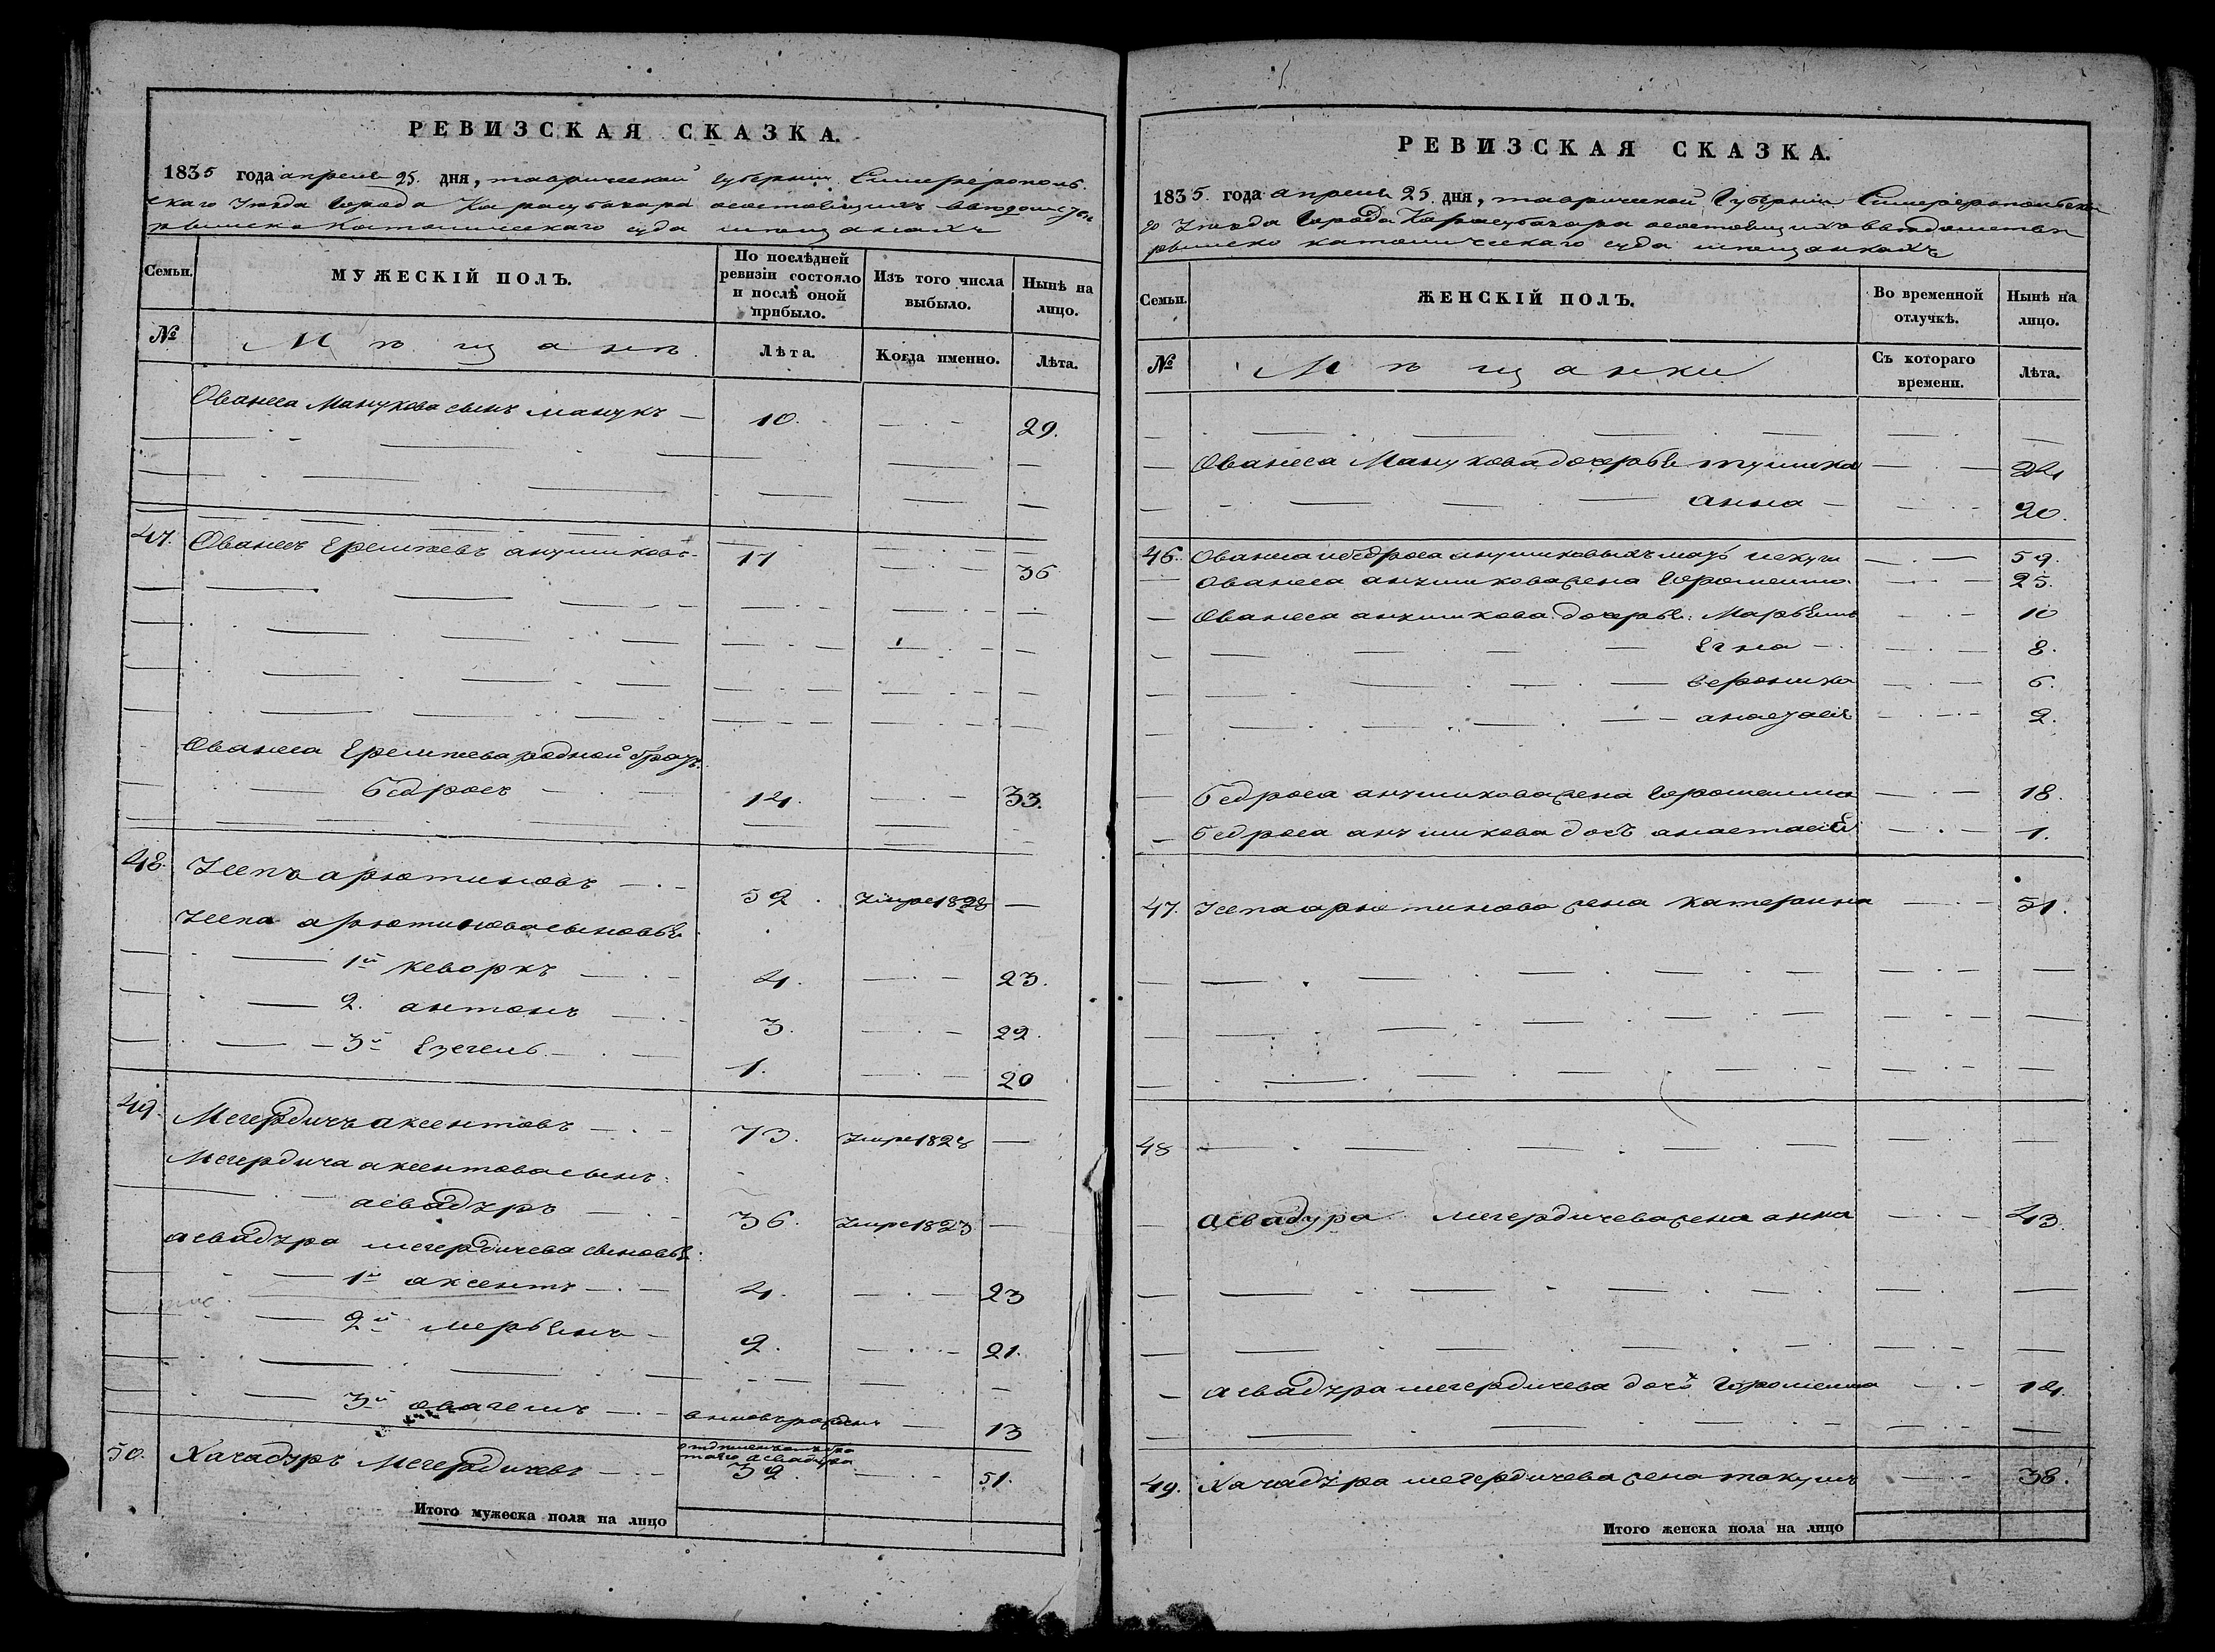 РЕВИЗСКАЯ СКАЗКА.
1835 года апреля 25. дня, таврической Губернии Симферополь-
скаго Уезда Города Карасубазара о состоящихъ
римско Католическаго суда мещанахъ
Семьи. МУЖЕСКІЙ ПОЛЪ. По послѣдней ревизіи состояло и послѣ оной прибыло. Изъ того числа выбыло. Нынѣ на лицо.
№ Мѣщане. Лѣта. Когда именно. Лѣта.
Ованеса Манукова сынъ манукъ 10. 29.
47. Ованесъ Еремѣевъ анушиковъ 17 36
Ованеса Еремѣева родной братъ
Бедросъ 14. 33.
48. Усепъ арютиновъ 52. Умре 1828
Усепа арютинова сыновья
1й кеворкъ 4. 23.
2. антонъ 3. 22.
3й Езегель 1. 20
49. Мегердичъ аксентовъ 73. Умре 1828
Мегердича аксентова сынъ
асвадуръ 36. Умре 1823
асвадура мегердичева сыновья:
1й аксентъ 4. 23
2й 2. 21.
3й вновь рожденъ 13
50. Хачадуръ Мегердичевъ 32. 51.
Итого мужеска пола на лицо
РЕВИЗСКАЯ СКАЗКА.
1835. года апреля 25. дня, таврической Губернии Симферопольска
го Уезда Города Карасубазара о состоящихъ в ведомстве
римско католическаго суда мещанкахъ
Семьи. ЖЕНСКІЙ ПОЛЪ. Во временной отлучкѣ. Нынѣ на лицо.
№ Мѣщанки Съ котораго времени. Лѣта.
Ованеса Манукова дочерья 24
анна 20.
46. Ованеса и бедроса анушиковыхъ мать 59.
Ованеса анушикова жена Горомсима 25.
Ованеса анушикова дочерья: Марьямъ 10
Егна 8.
вероника 6.
анастасія 2.
Бедроса анушикова жена Горомсима 18.
Бедроса анушикова дочь анастасія 1.
47. Усепа арютинова жена катерина 51.
48
асвадура мегердичева жена анна 43.
асвадура мегердичева дочь Горомсима 14.
49. Хачадура мегердичева жена такумъ 38.
Итого женска пола на лицо